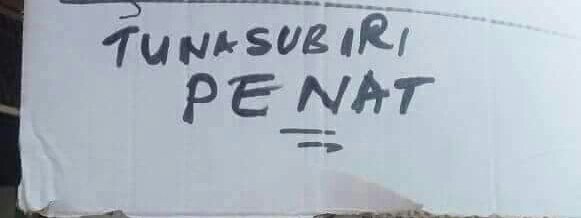 TUNASUBIRI
PENAT